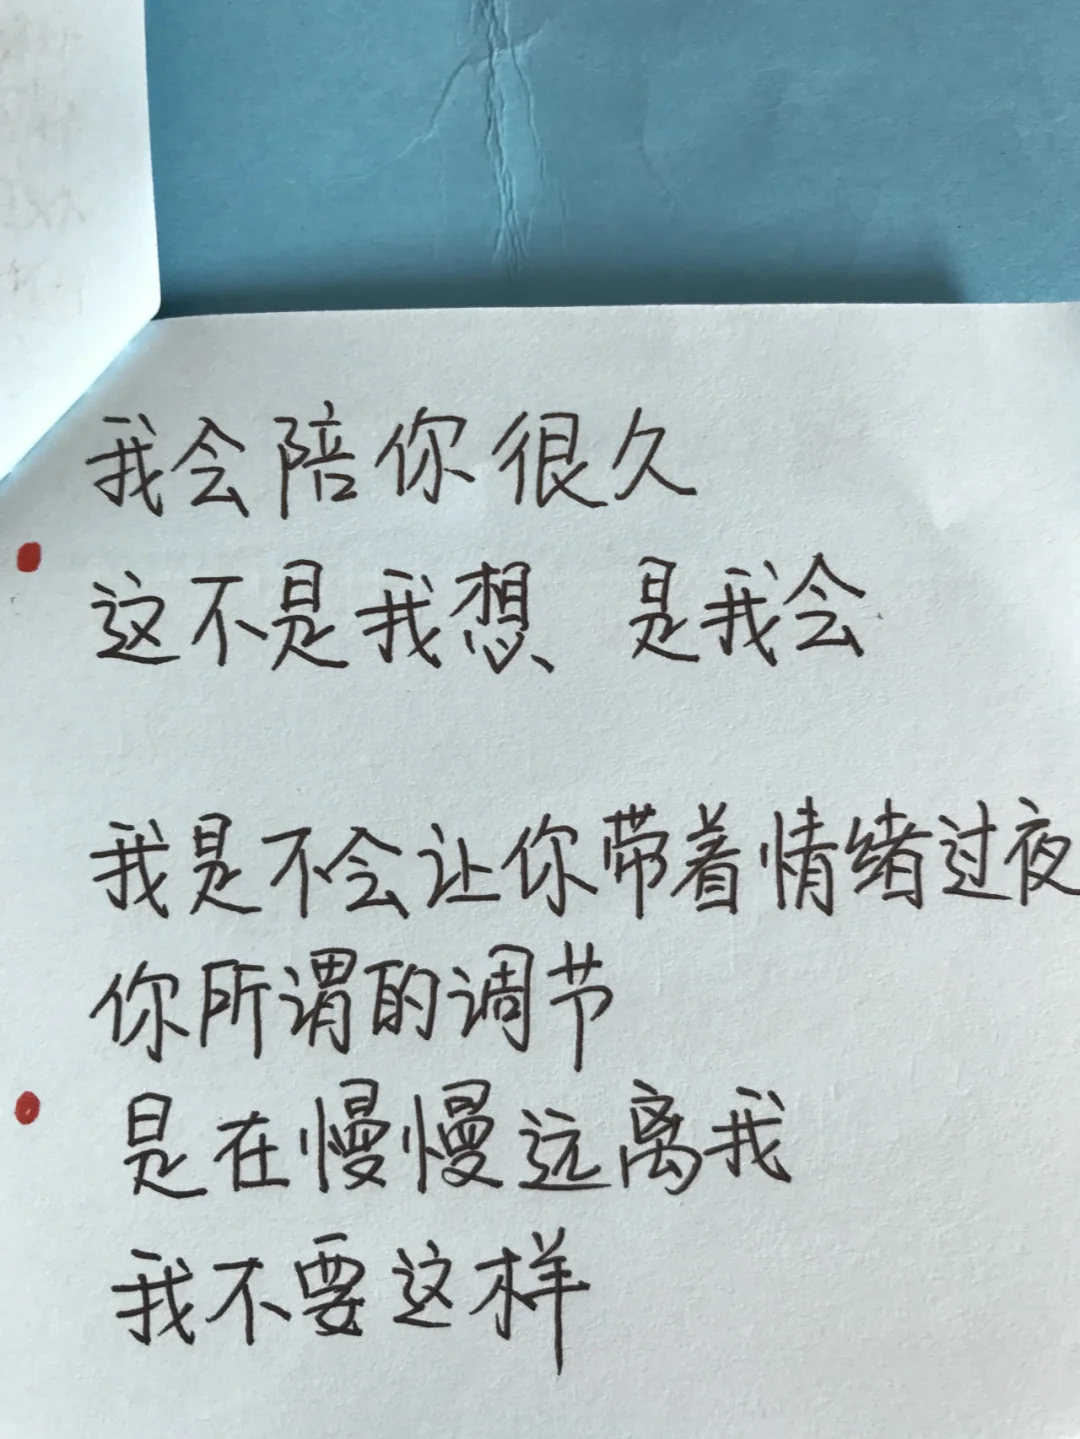 我会陪你很久
这不是我想、是我会
我是不会让你带着情绪过夜
你所谓的调节
是在慢慢远离我
我不要这样